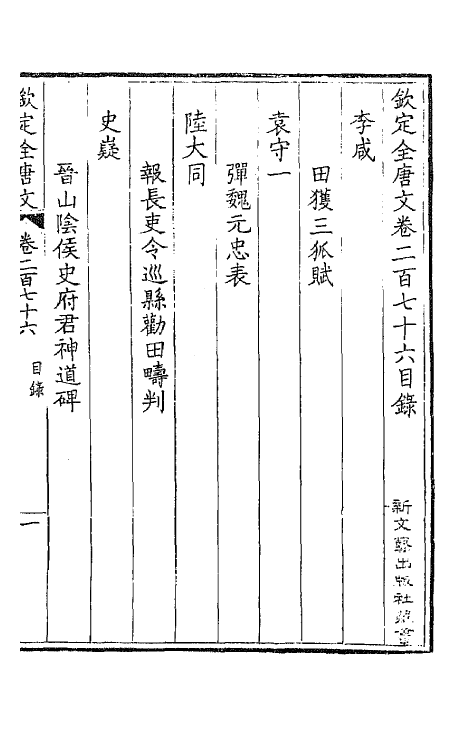 欽定全唐文卷二百七十六目錄
李咸
田獲三狐賦
袁守一
彈魏元忠表
陸大同
報長吏令巡縣勸田疇判
史嶷
晉山陰侯史府君神道碑
欽定全唐文 卷二百七十六 目錄 一
新文藝出版社